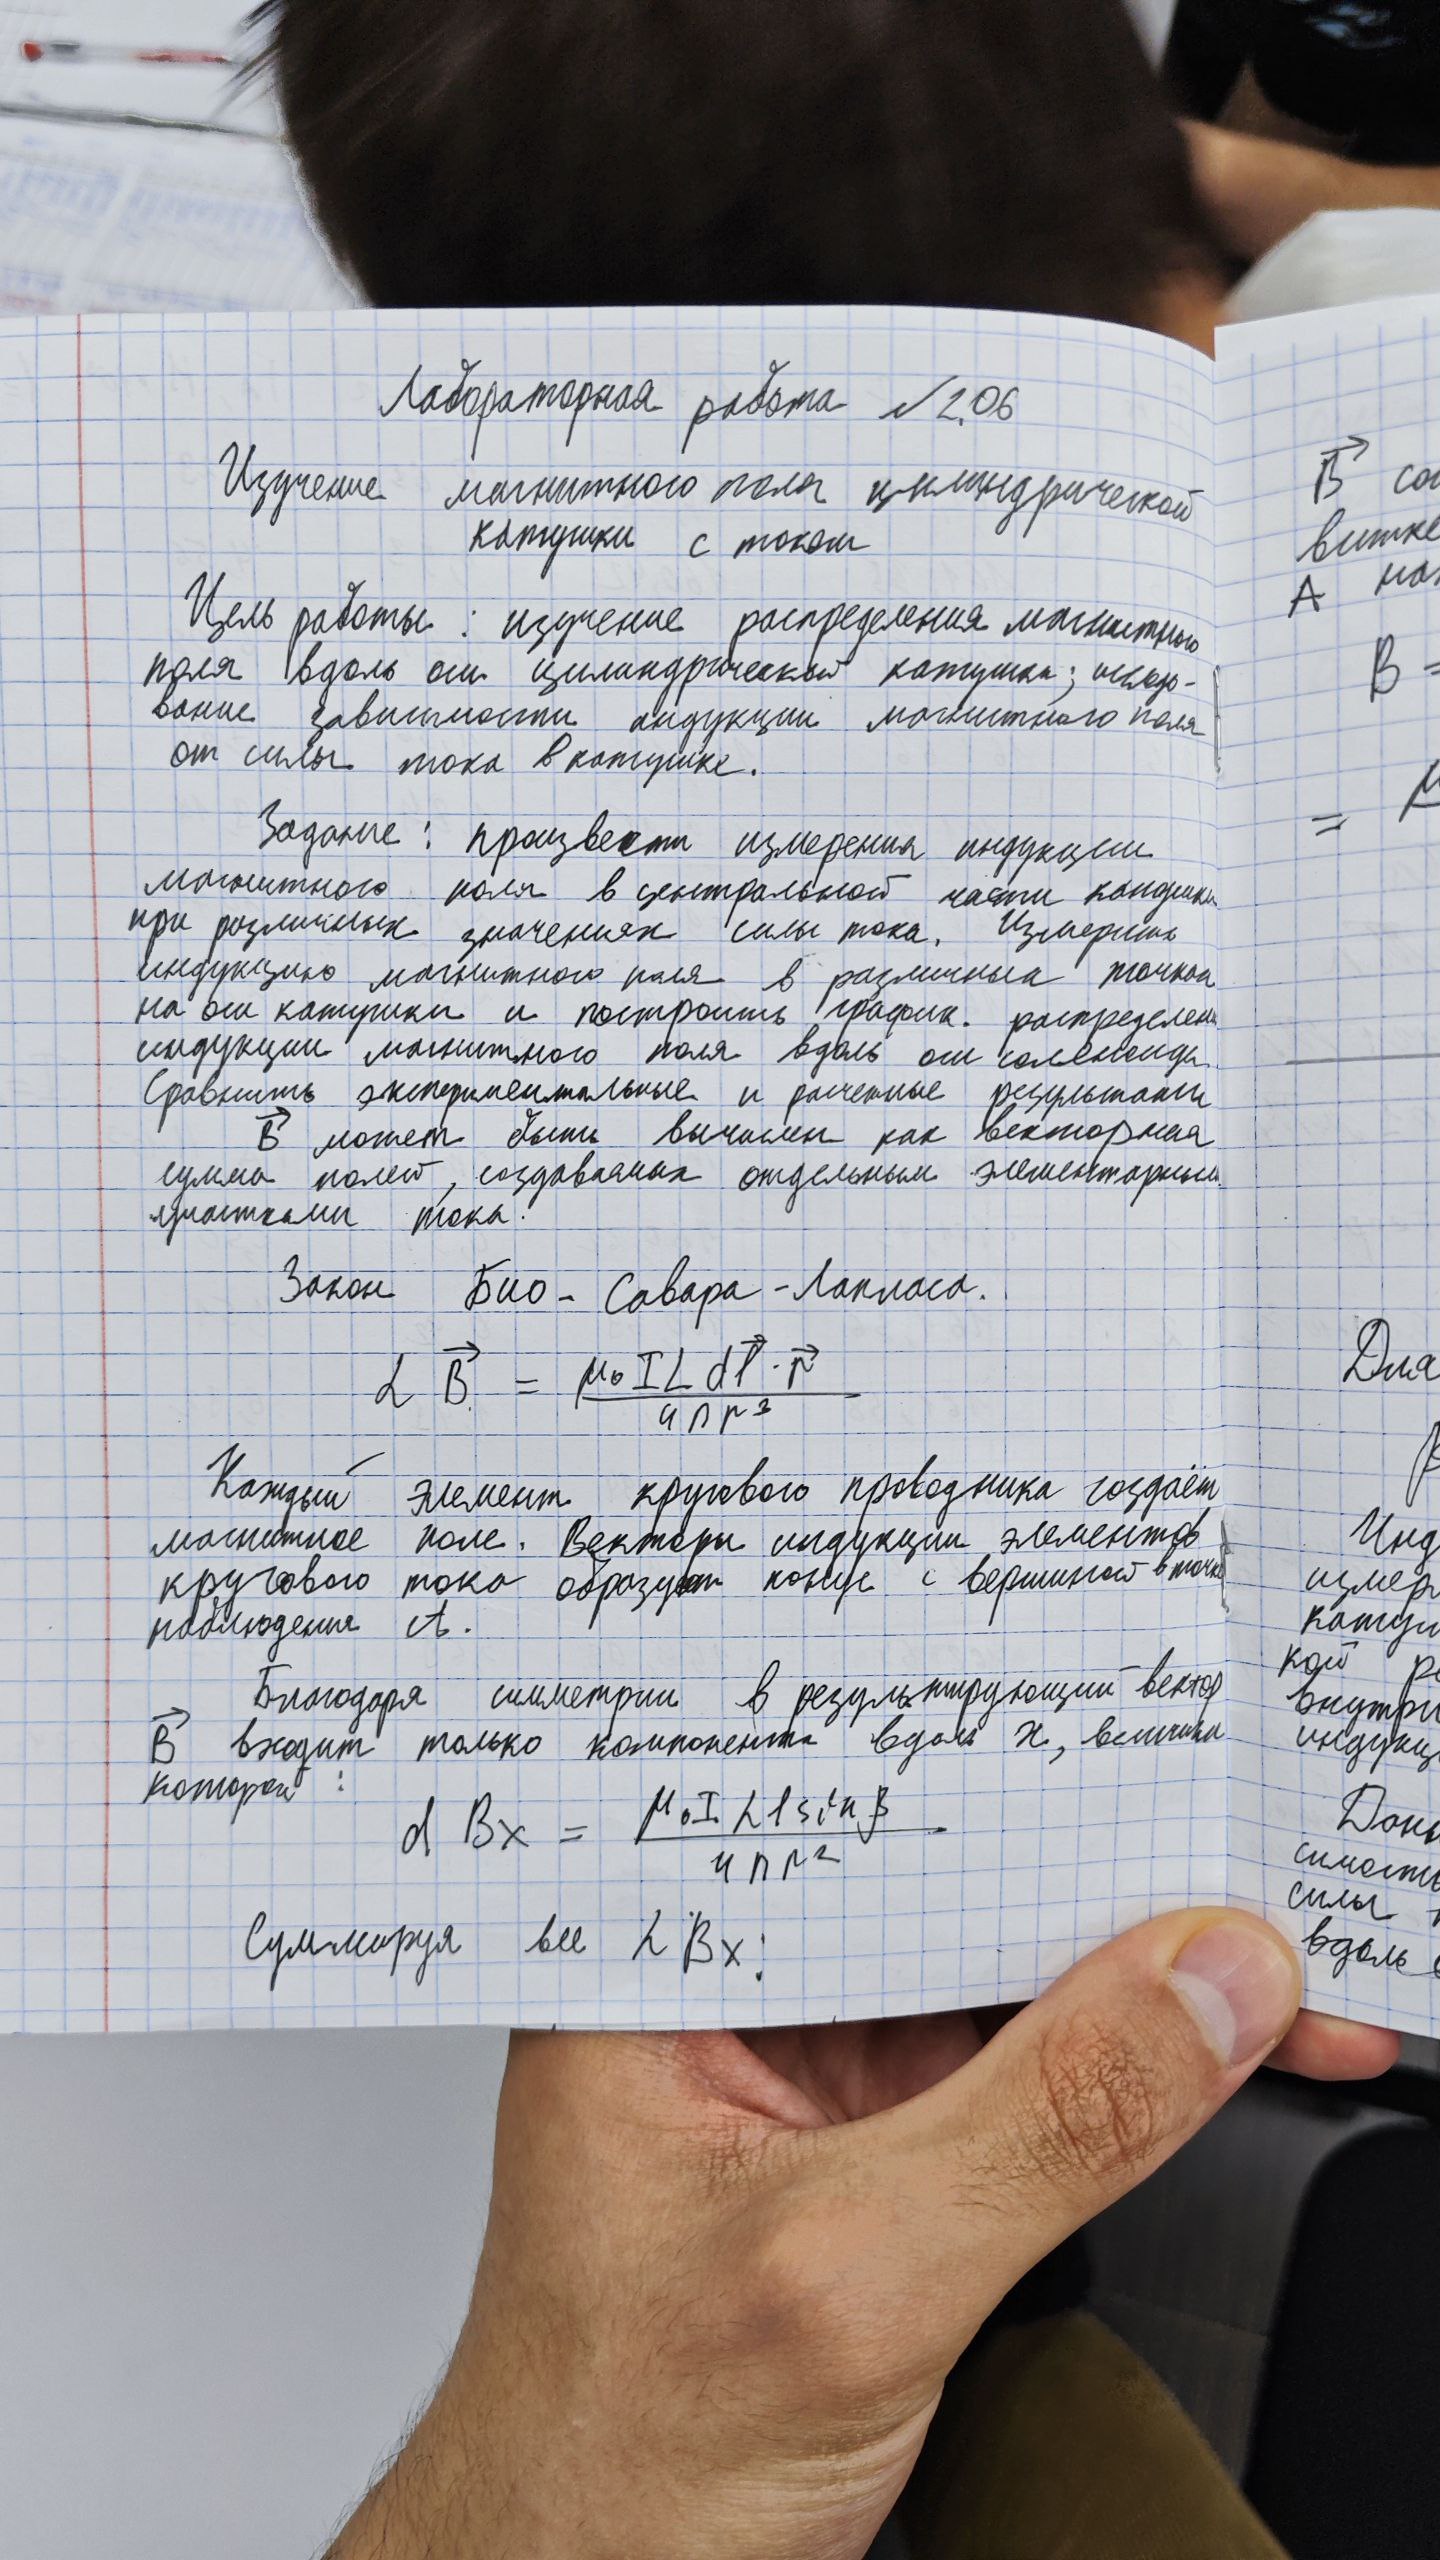 Лабораторная работа №2.06
Изучение магнитного поля цилиндрической
катушки с током
Цель работы: изучение распределения магнитного
поля вдоль оси цилиндрической катушки; исследо-
вание зависимости индукции магнитного поля
от силы тока в катушке.
Задание: произвести измерения индукции
магнитного поля в центральной части катушки
при различных значениях силы тока. Измерить
индукцию магнитного поля в различных точках
на оси катушки и построить график распределен
индукции магнитного поля вдоль оси соленоида.
Сравнить экспериментальные и расчетные результаты
B⃗ может быть вычислен как векторная
сумма полей, создаваемых отдельным элементарным
участками тока.
Закон Био-Савара-Лапласа.
d B⃗ = μ₀ I L dl⃗ · r⃗ / 4πr³
Каждый элемент кругового проводника создаёт
магнитное поле. Векторы индукции элементов
кругового тока образуют конус с вершиной в точке
наблюдения A.
Благодаря симметрии в результирующий вектор
B⃗ входит только компонента вдоль x, величина
которой:
d Bx = μ₀ I d l sin β / 4πr²
Суммируя все d Bx:
B⃗
A
B =
=
Для